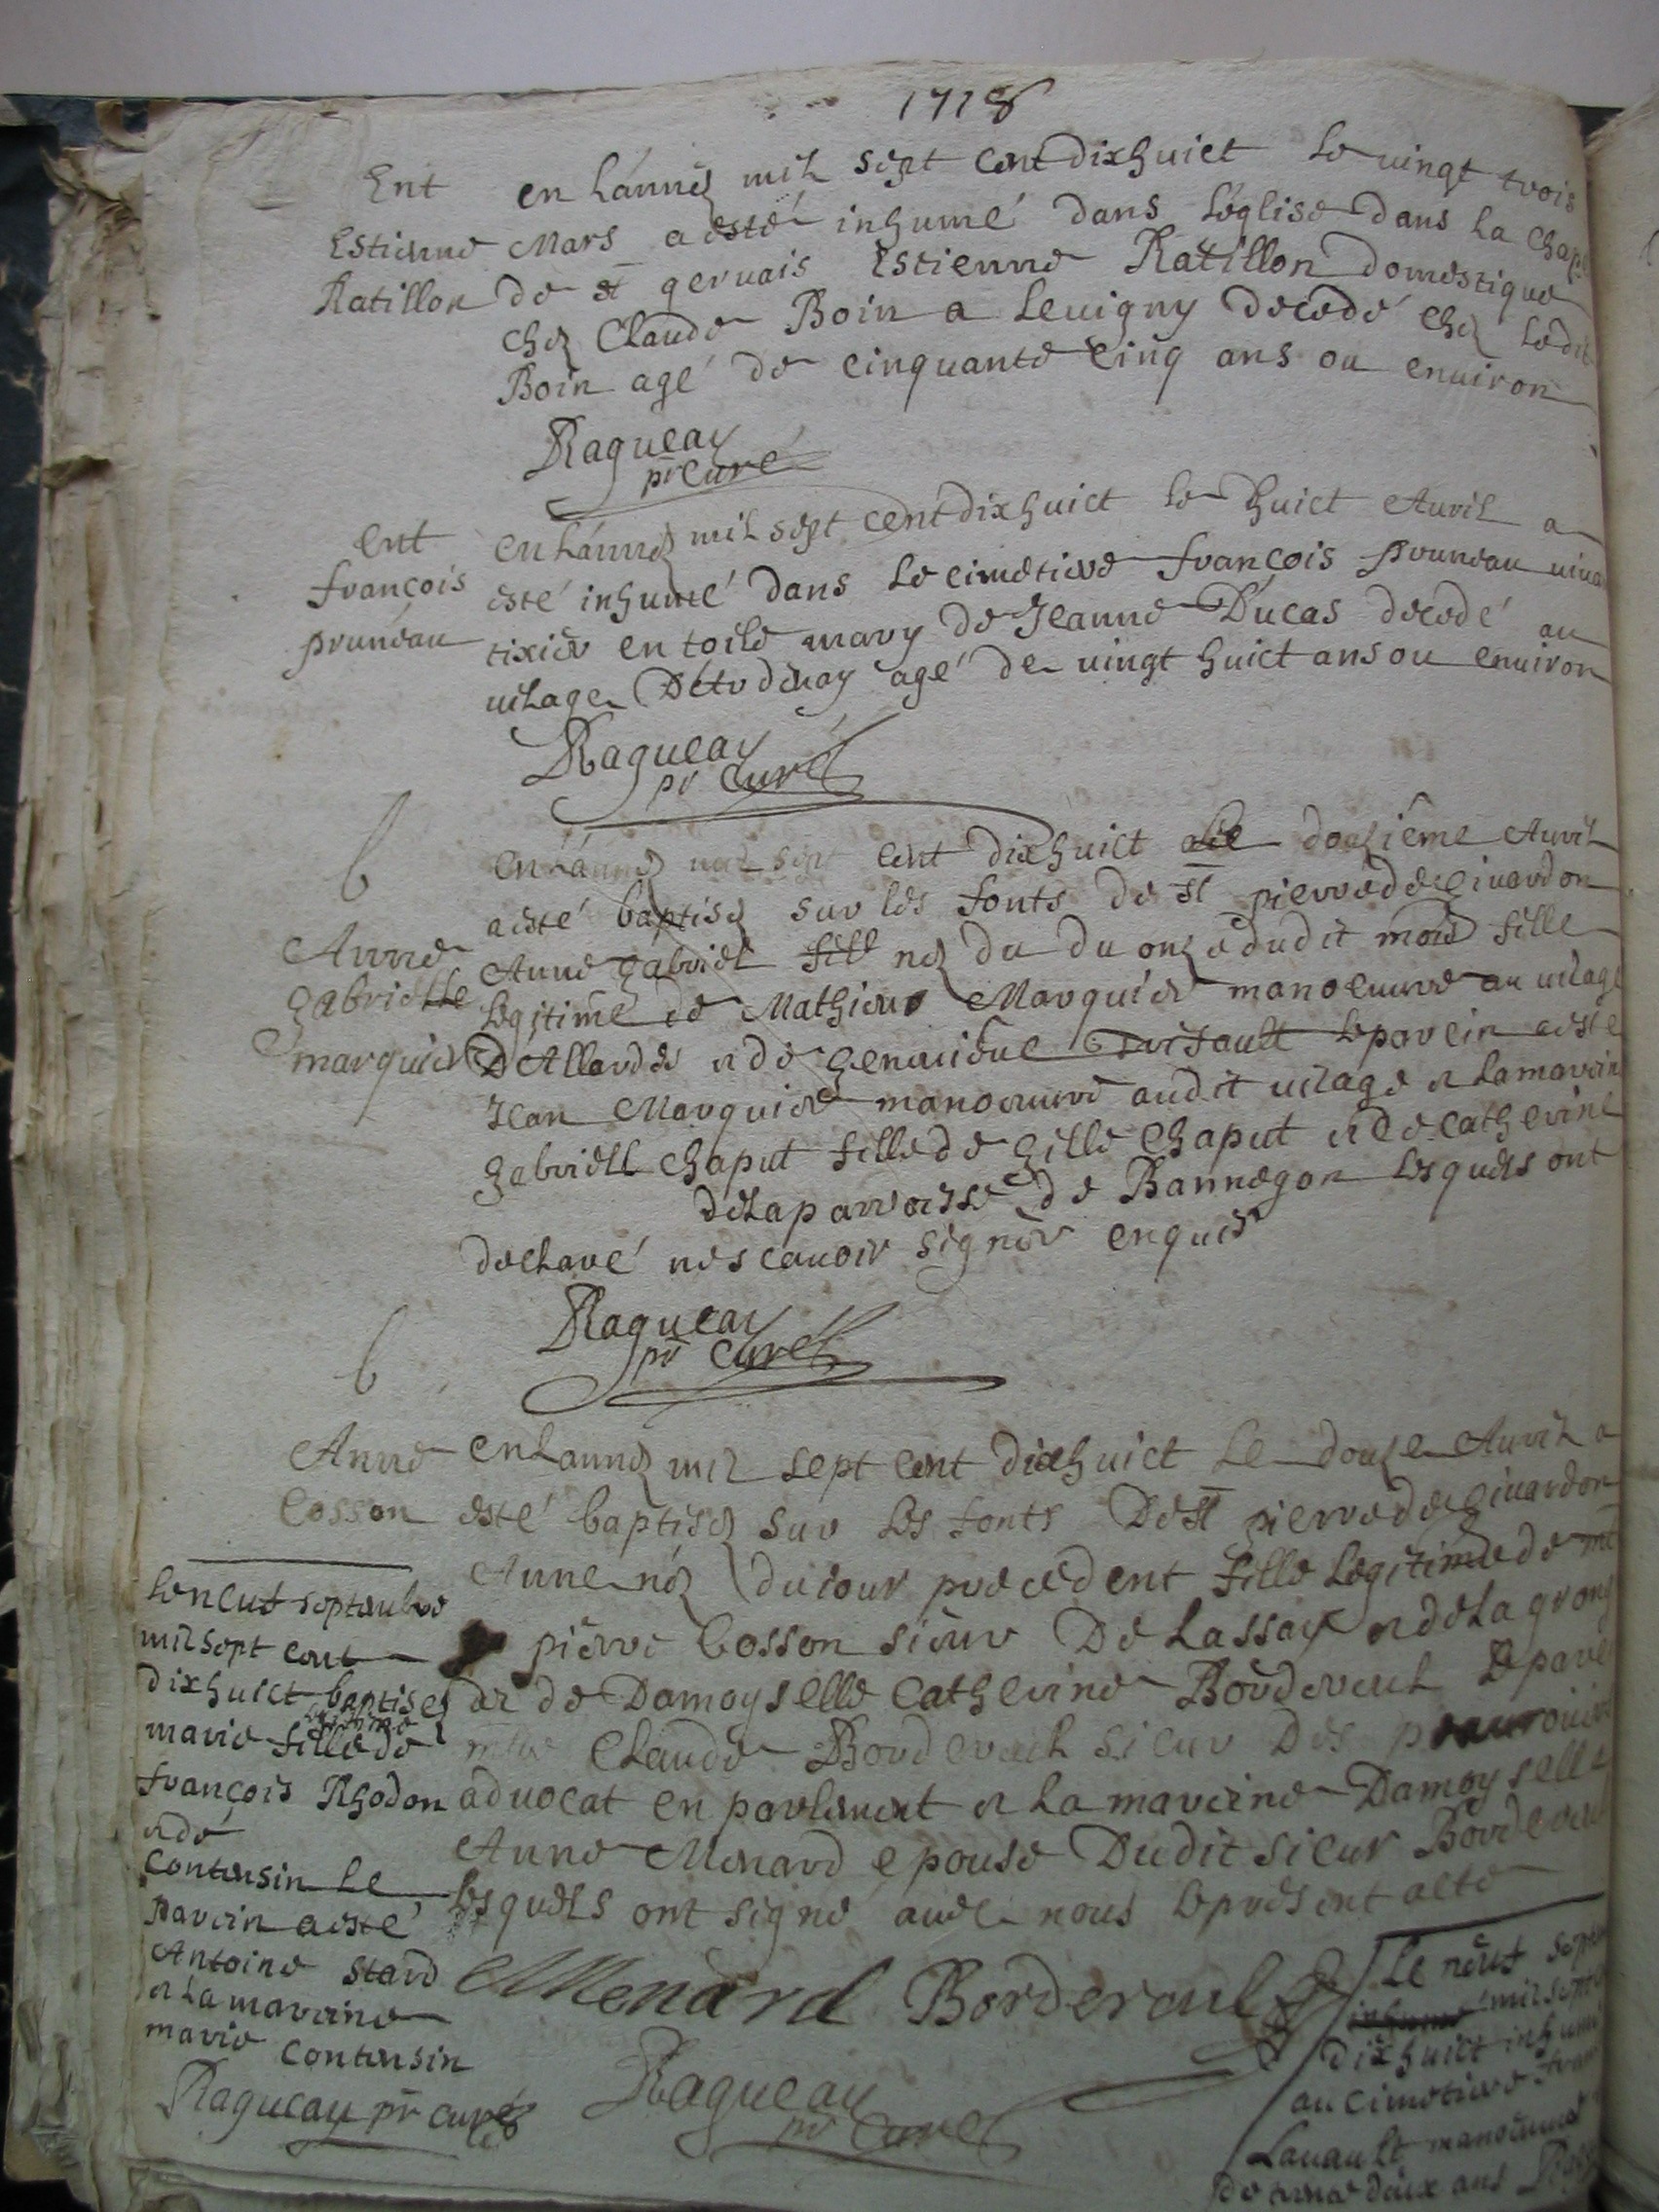 1718
Ent
Estienne
Ratillon
en Lánneé mil sept cent dixhuict Le uingt trois
Mars a esté inhumé dans Léglise dans La Chap
de st geruais Estienne Ratillon domestique
chez Claude Boin a Leuigny decedé chez Ledit
Boin agé de cinquante cinq ans ou enuiron
Ragueau
pr Curé
Ent
françois
pruneau
en Lánneé mil sept cent dixhuict Le huict Auril a
esté inhumé dans Le cimetiere françois pruneau
tixier en toile mary de Jeanne Ducas decedé au
uilage agé de uingt huict ans ou enuiron
Ragueau
pr Curé
b
Anne
gabrielle
marquier
en Lánneé mil sept cent dixhuict douziême Auril
a esté baptiseé sur Les fonts de st pierre de giuardon
Anne gabriel neé du du onze dudit mois fille
Legitime de Mathieu Marquier manoeuure au uilage
D'Allardes et de geneuieue Le parein a esté
Jean Marquier manoeuure audit uilage et La marein
gabriell Chaput fille de gille Chaput et de catherine
de La parroisse de Bannegon Lesquels ont
declaré ne scauoir signer enquis
Ragueau
pr Curé
b
Anne
Cosson
en Lanneé mil sept cent dixhuict Le douze Auril a
esté baptiseé sur Les fonts De st pierre de giuardon
Anne neé du iour precedent fille Legitime de mt
pierre Cosson sieur De Lassay et de La grong
et de Damoyselle Catherine Bordereul Le parei
Claude Bordereul sieur Des
aduocat en parlement et La mareine Damoyselle
Anne Menard epouse Dudit sieur Bordereul
Lesquels ont signé auec nous Le present acte
Menard Bordereul
Ragueau
pr Curé
Le neuf septembre
mil sept cent
dixhuict baptiseé
legitime
marie fille de
françois Rhodon
et de
Contensin Le
parein a esté
Antoine Stard
et La mareine
marie Contensin
Ragueau pr curé
Le neuf sept
mil sept
dixhuict inhumé
au cimetiere fran
Lauault manoeuure
de trente deux ans